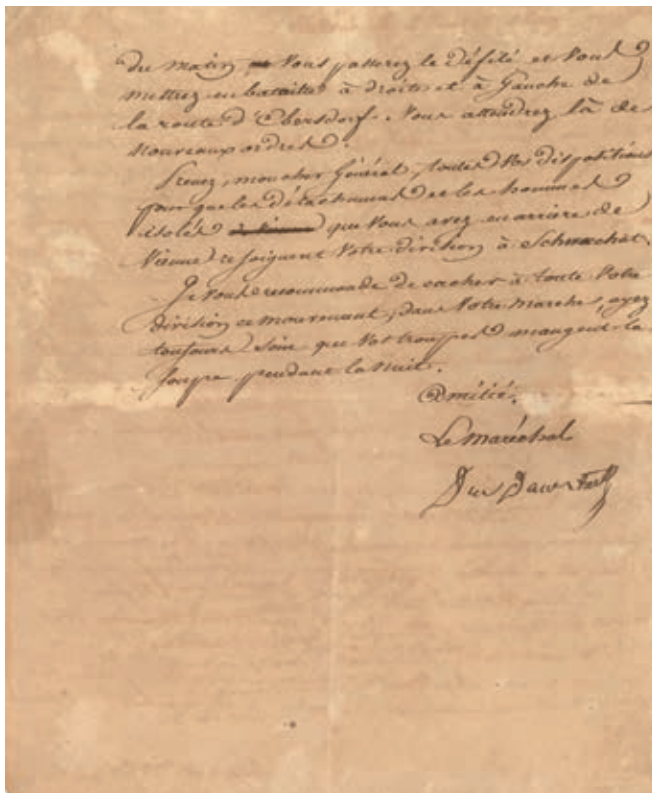 du matin vous passerez le défilé et vous
mettrez en bataille à droite et à Gauche de
la route d'Ebersdorf. Vous attendrez là de
nouveaux ordres.
Prenez, mon cher Général, toutes vos dispositions
pour que les détachemens et les hommes
isolés à Vienne que vous avez en arrière de
Vienne rejoignent votre division à Schwechat.
Je vous recommande de cacher à toute votre
division ce mouvement; dans votre marche, ayez
toujours soin que vos troupes mangent la
soupe pendant la nuit.
Amitié.
Le Maréchal
Duc d'auerstaedt